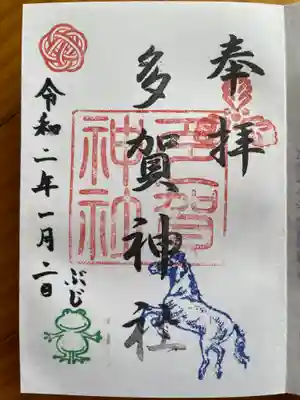 奉拝
多賀神社
多賀神社
令和二年一月二日
ぶじ